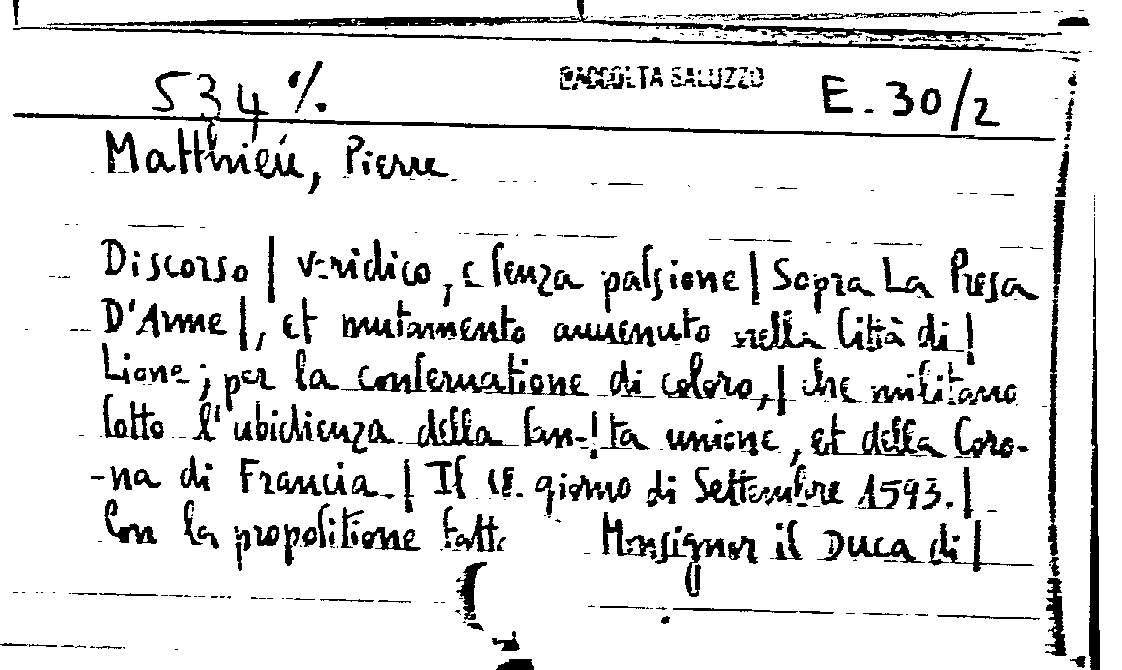 534 %
RACCOLTA SALUZZO
E. 30/2
Matthieu, Pierre
Discorso | veridico, e senza passione | Sopra La Presa
D'Arme |, et mutamento auuenuto nella Città di |
Lione; per la conseruatione di coloro, | che militano
sotto l'ubidienza della san-|ta unione, et della Coro-
-na di Francia. | Il 18. giorno di Settembre 1593. |
Con la propositione fatta Monsignor il Duca di |